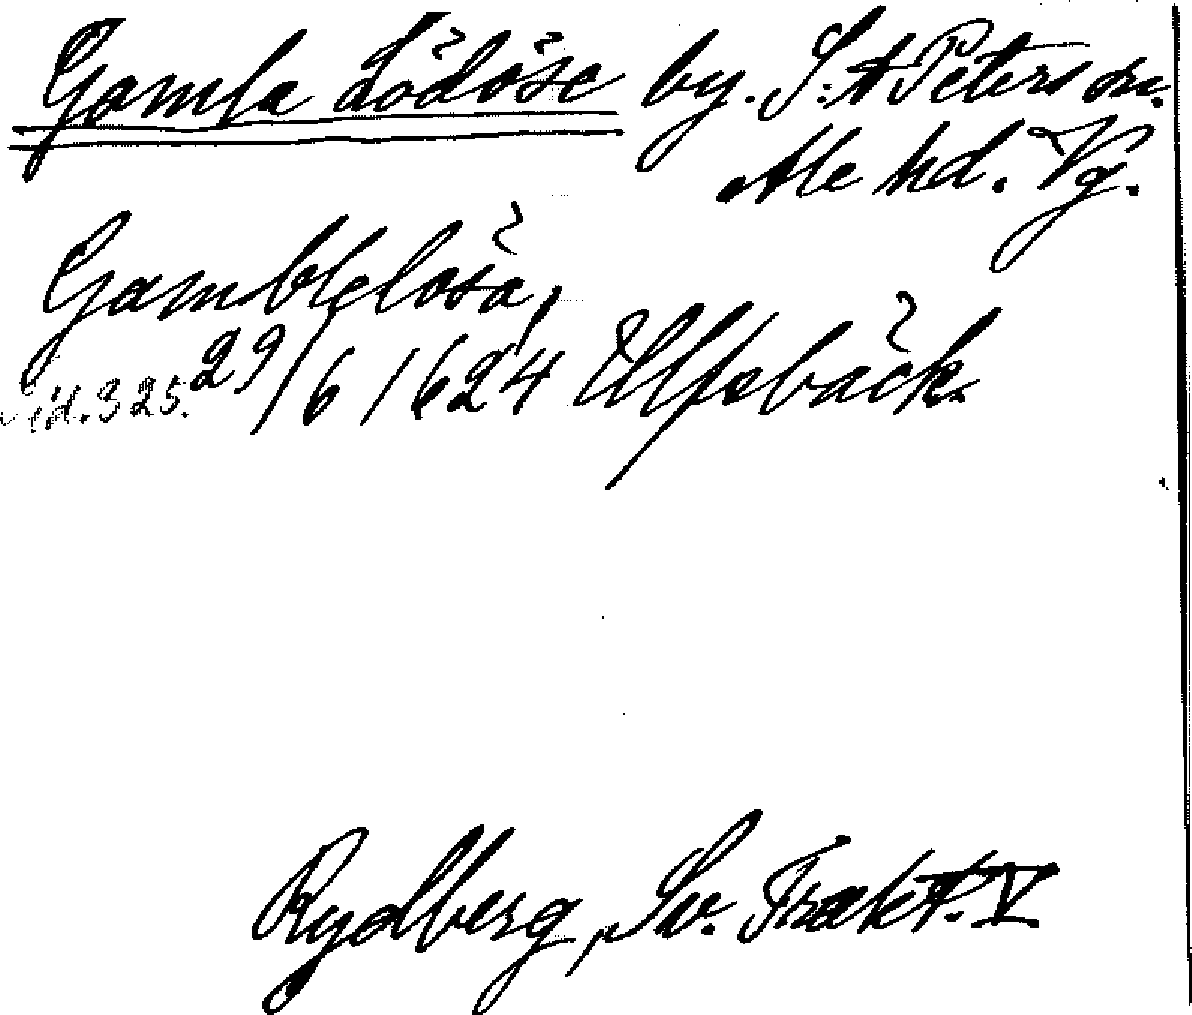 Gamla Lödöse by. S:t Peters sn.
Ale hd. Vg.
Gambleløsä,
sid. 325. 29/6 1624 Ulfsbäck.
Rydberg, Sv. Trakt. V.